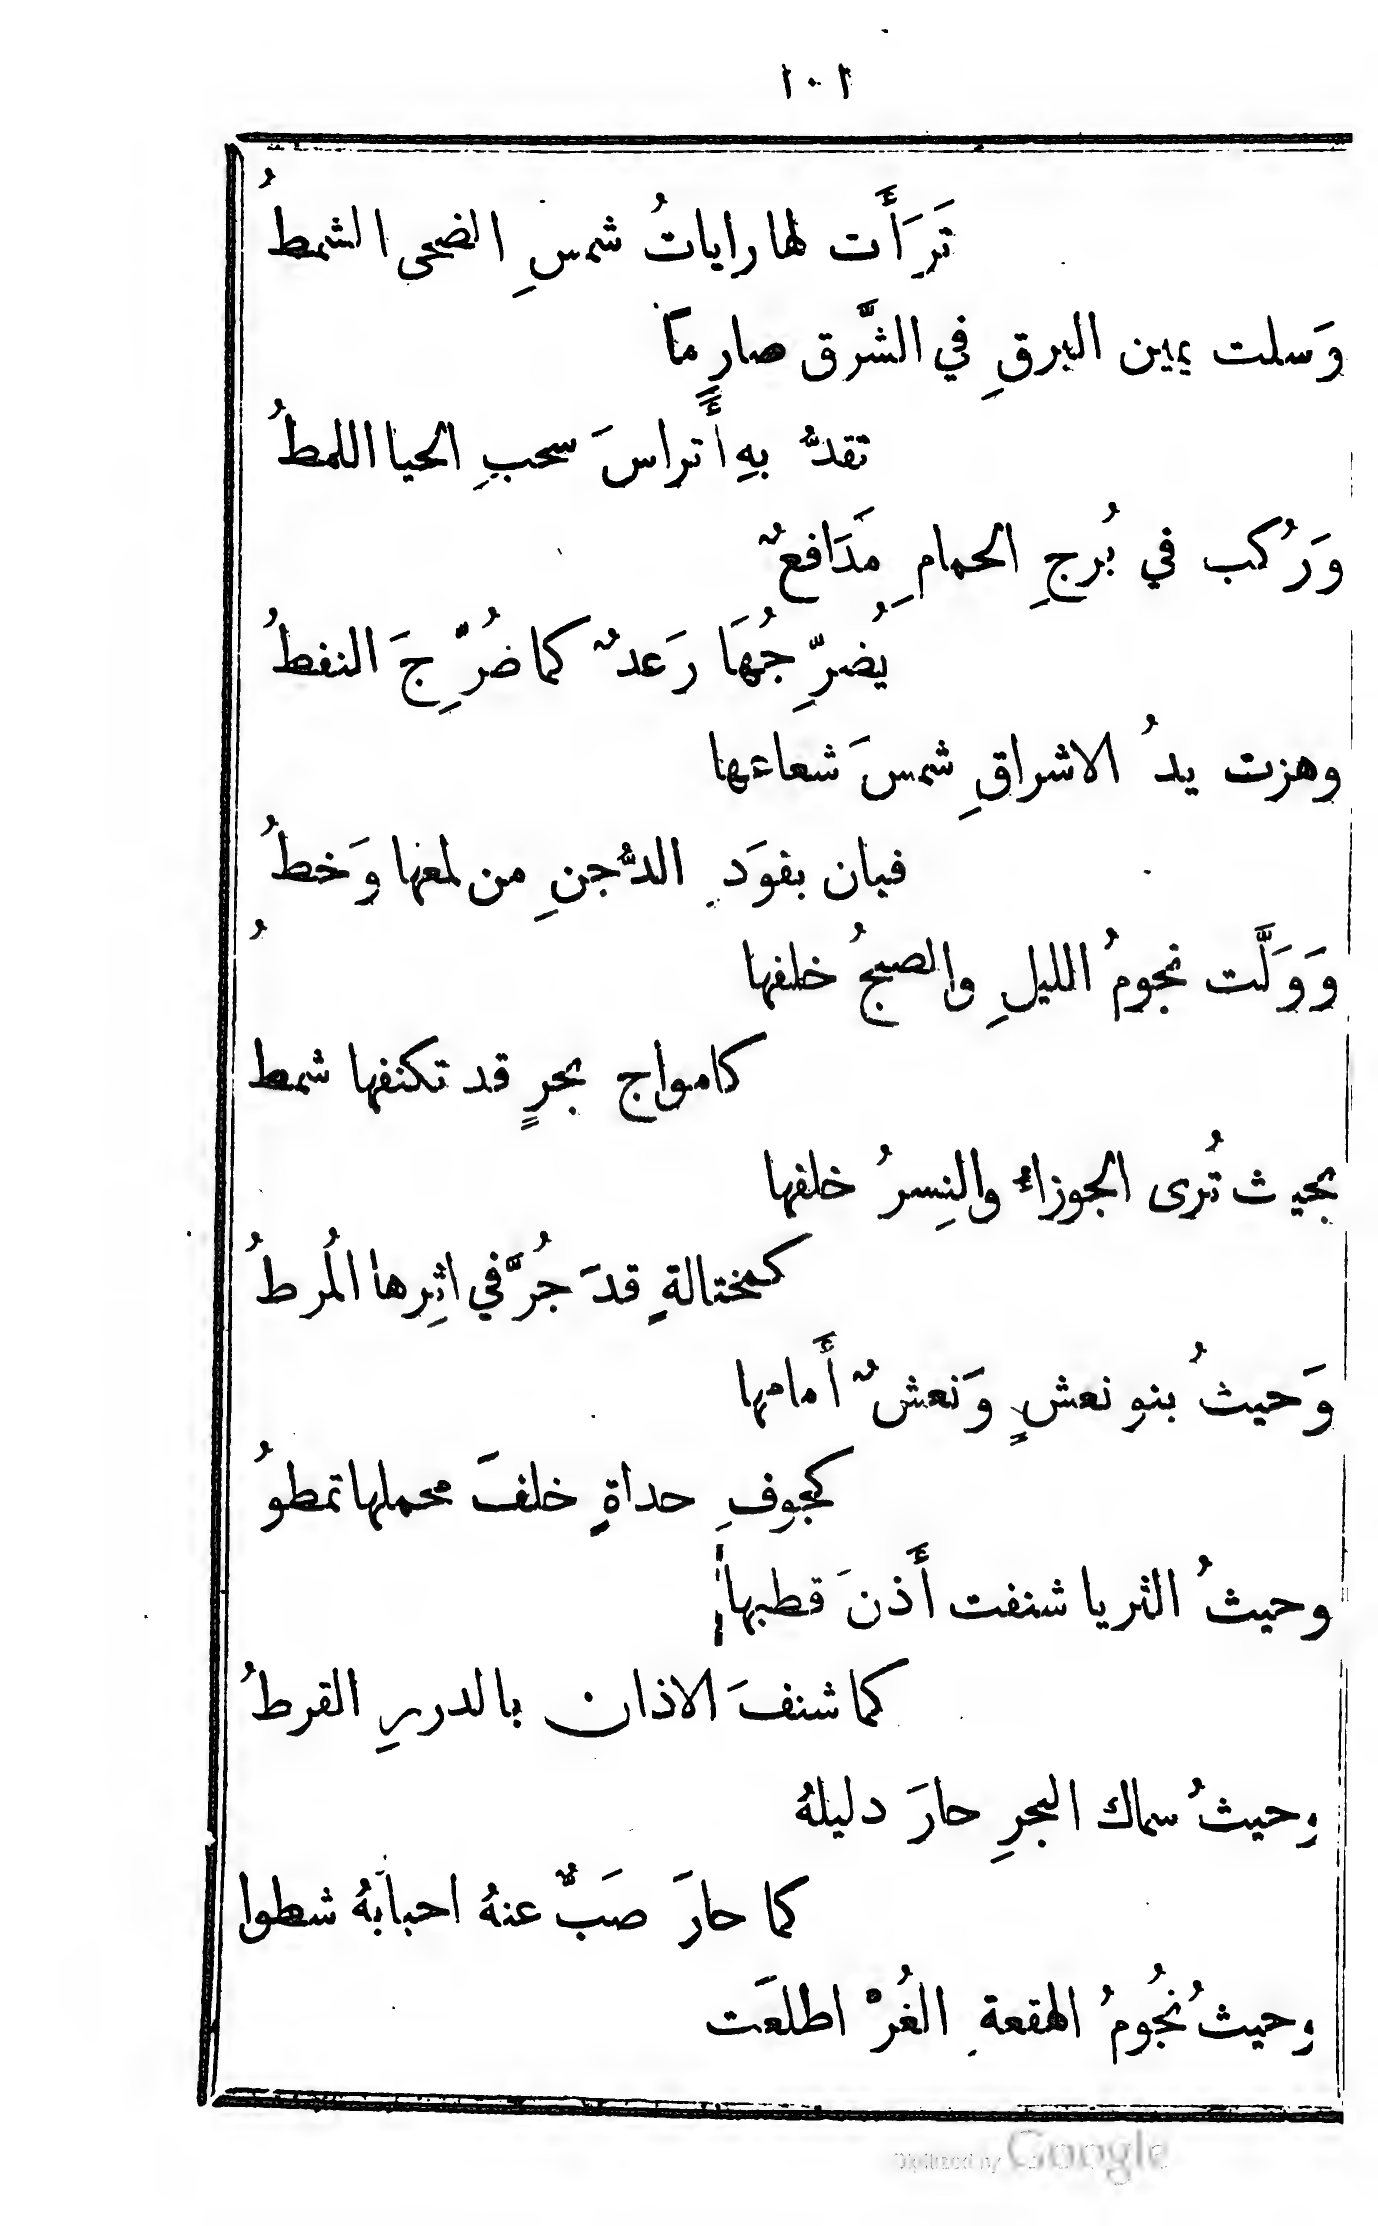 ١٠١
تَرَأَت لها راياتُ شمسِ الضحى الشمطُ
وَسلت يمين البرقِ في الشَّرق صارِمًا
تقدُّ بهِ أَتراسَ سحبِ الحيا اللمطُ
وَرُكب في بُرجِ الحمامِ مَدَافعٌ
يُضرِّجُهَا رَعدٌ كما ضُرِّجَ النفطُ
وهزت يدُ الاشراقِ شمسَ شعاعها
فبان بفوَدِ الدُّجنِ من لمعها وَخطُ
وَوَلَّت نجومُ الليلِ والصبحُ خلفها
كامواج بحرٍ قد تكنفها شمطُ
بحيث تُرى الجوزاءُ والنِسرُ خلفها
كمختالةٍ قدَ جُرَّ في اثِرها المُرطُ
وَحيثُ بنو نعشٍ وَنعشٌ أَمامها
كجوفِ حداةٍ خلفَ محملها تمطوُ
وحيثُ الثريا شنفت أَذنَ قطبها
كما شنفَ الاذان بالدررِ القرطُ
وحيثُ سماك البحرِ حارَ دليلهُ
كما حارَ صَبٌّ عنهُ احبابَهُ شطوا
وحيثُ نجُومُ الهقعةِ الغُرْ اطلعَت
Digitized by Google